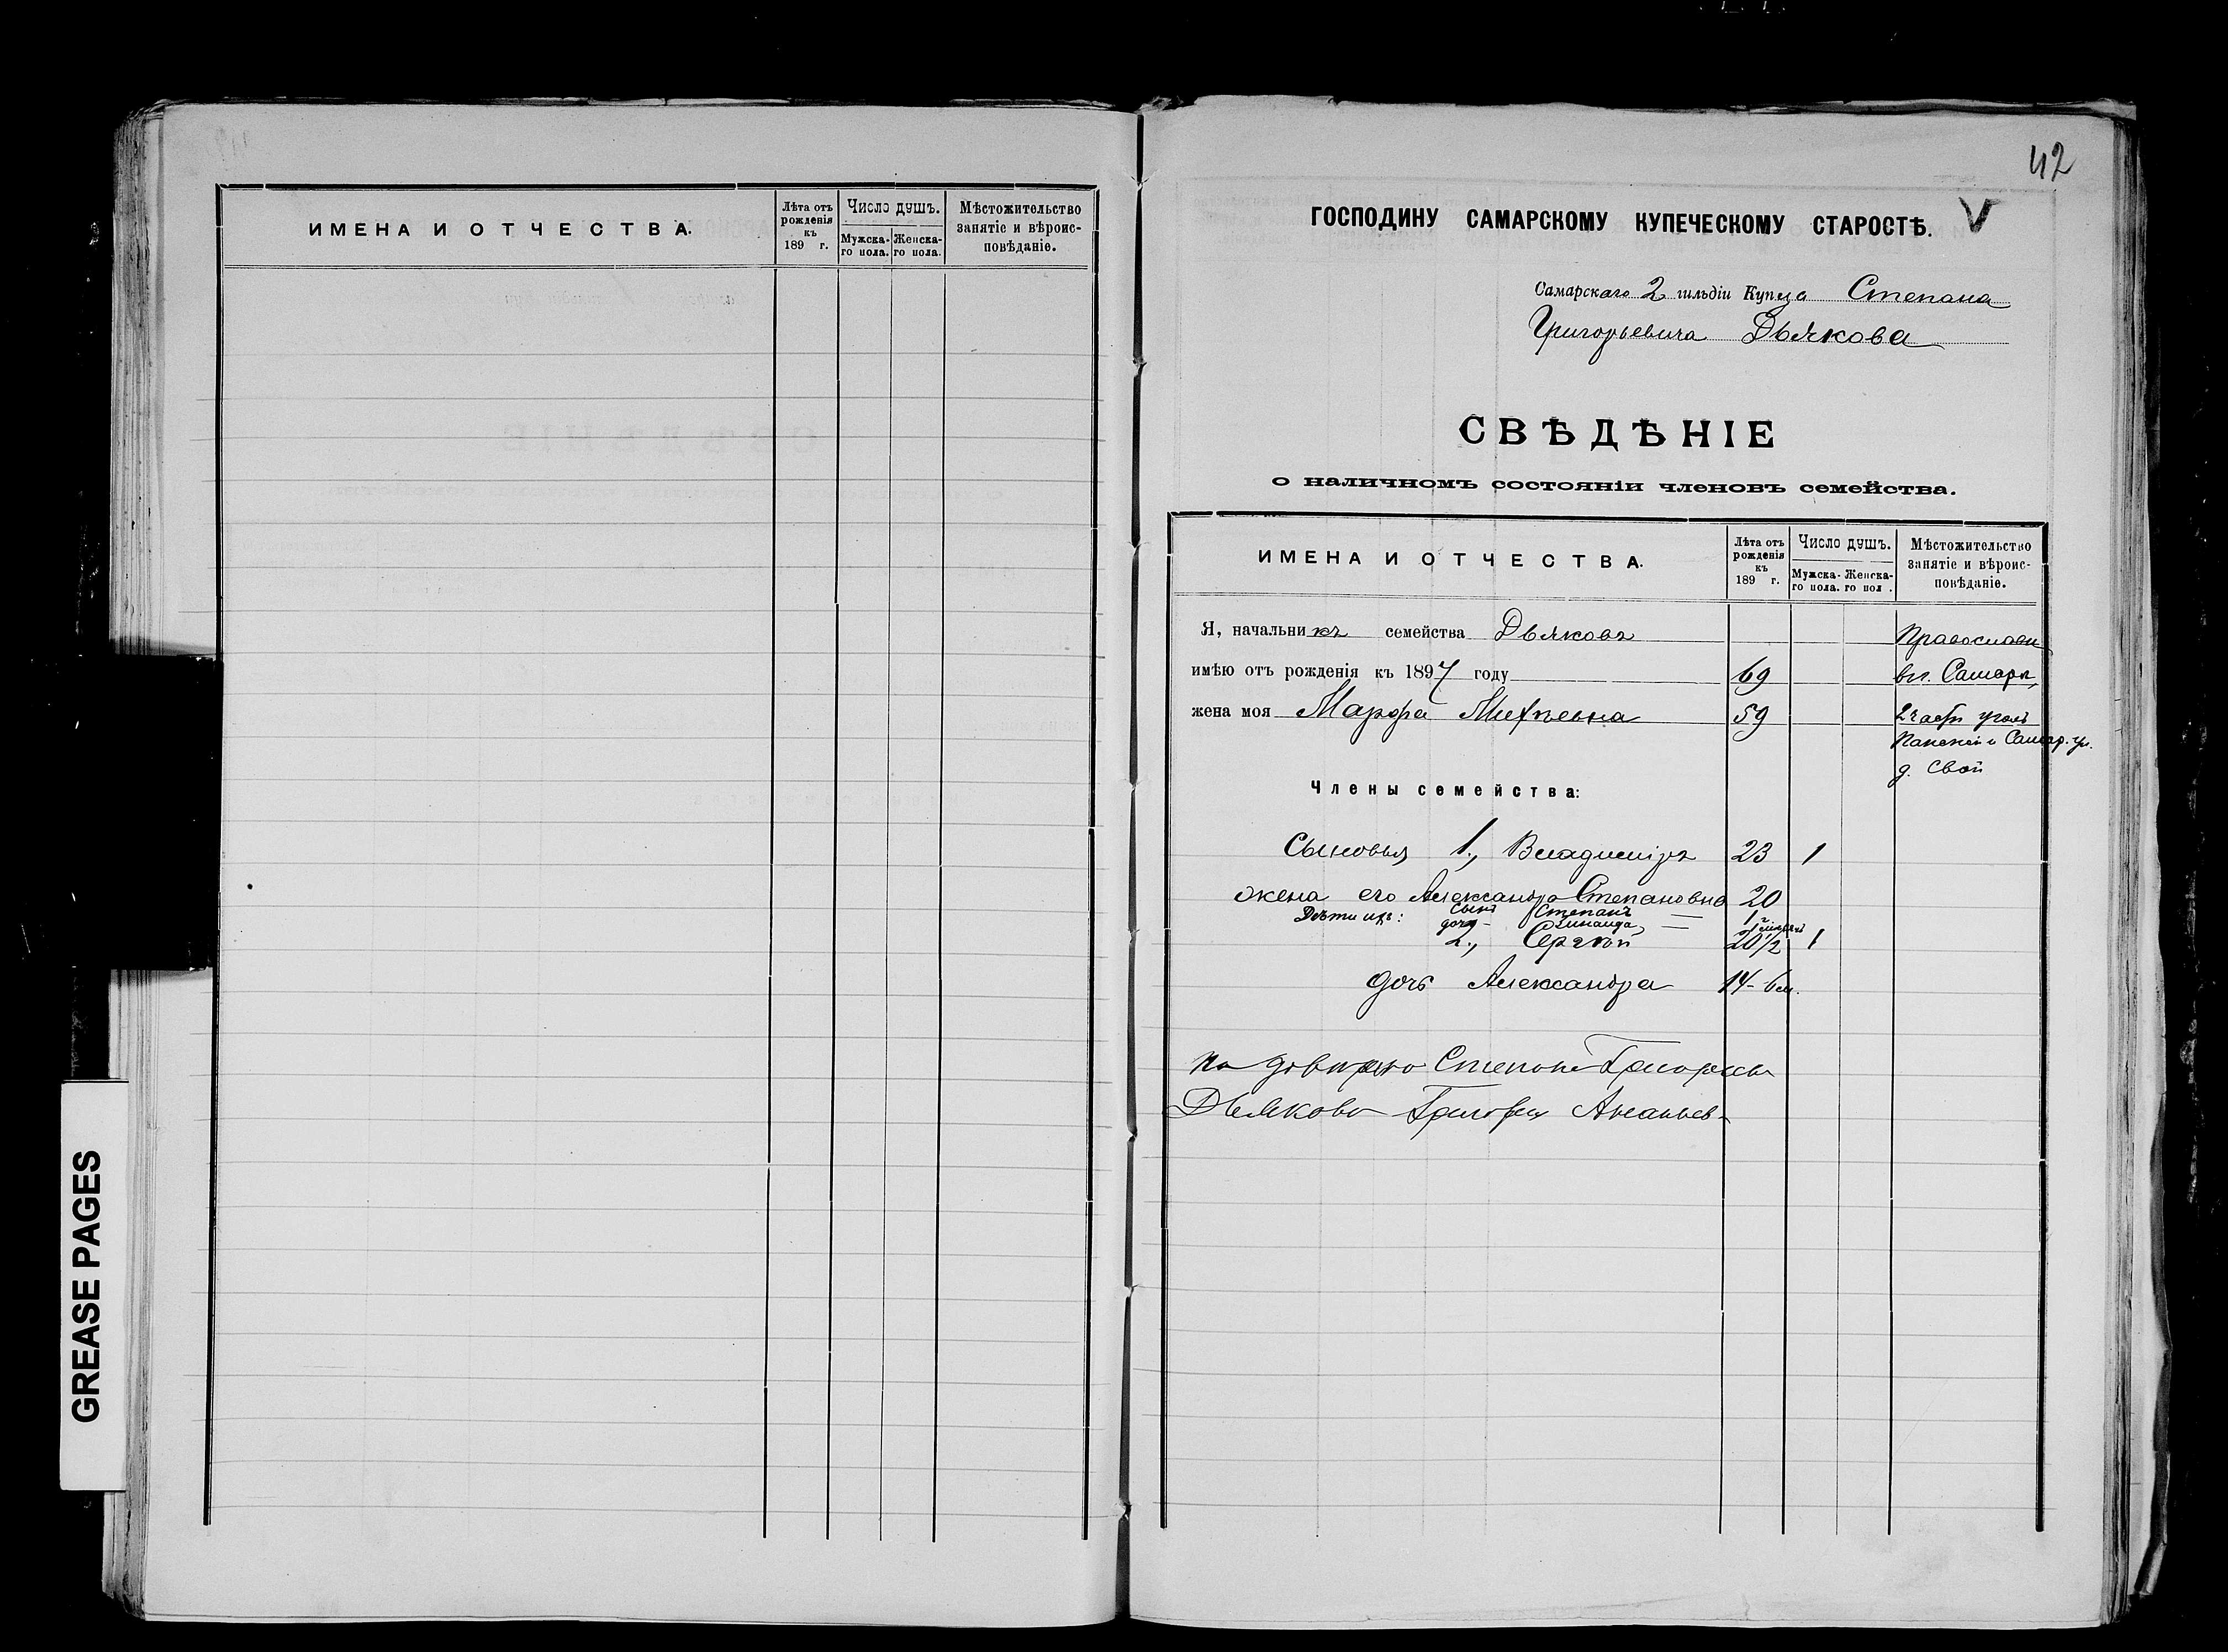 ИМЕНА И ОТЧЕСТВА.
Лѣта отъ рожденія къ 189 г.
Число душъ.
Мужска-го пола.
Женска-го пола.
Мѣстожительство занятіе и вѣроис-повѣданіе.
GREASE PAGES
42
ГОСПОДИНУ САМАРСКОМУ КУПЕЧЕСКОМУ СТАРОСТѢ. V
Самарскаго 2 гильдіи Купца Степана
Григорьевича Дьякова
СВѢДѢНІЕ
о наличномъ состояніи членовъ семейства.
ИМЕНА И ОТЧЕСТВА.
Лѣта отъ рожденія къ 189 г.
Число душъ.
Мужска-го пола.
Женска-го пол .
Мѣстожительство занятіе и вѣроис-повѣданіе.
Я, начальникъ семейства Дьяковъ Православн
имѣю отъ рожденія къ 1897 году 69 вг. Самарѣ,
жена моя Марфа Михѣевна 59 2 части уголъ
Панской и Самар. ул.
д. Свой
Члены семейства:
Сыновья 1., Владиміръ 23 1
жена его Александра Степановна 20
Дѣти ихъ: сынъ Степанъ — 1 г.
дочь — Зинаида —
2., Сергѣй 20½ 1
дочь Александра 14 - 6 м.
По довѣрію Степана Григорьев
Дьякова Григорій Ананьев